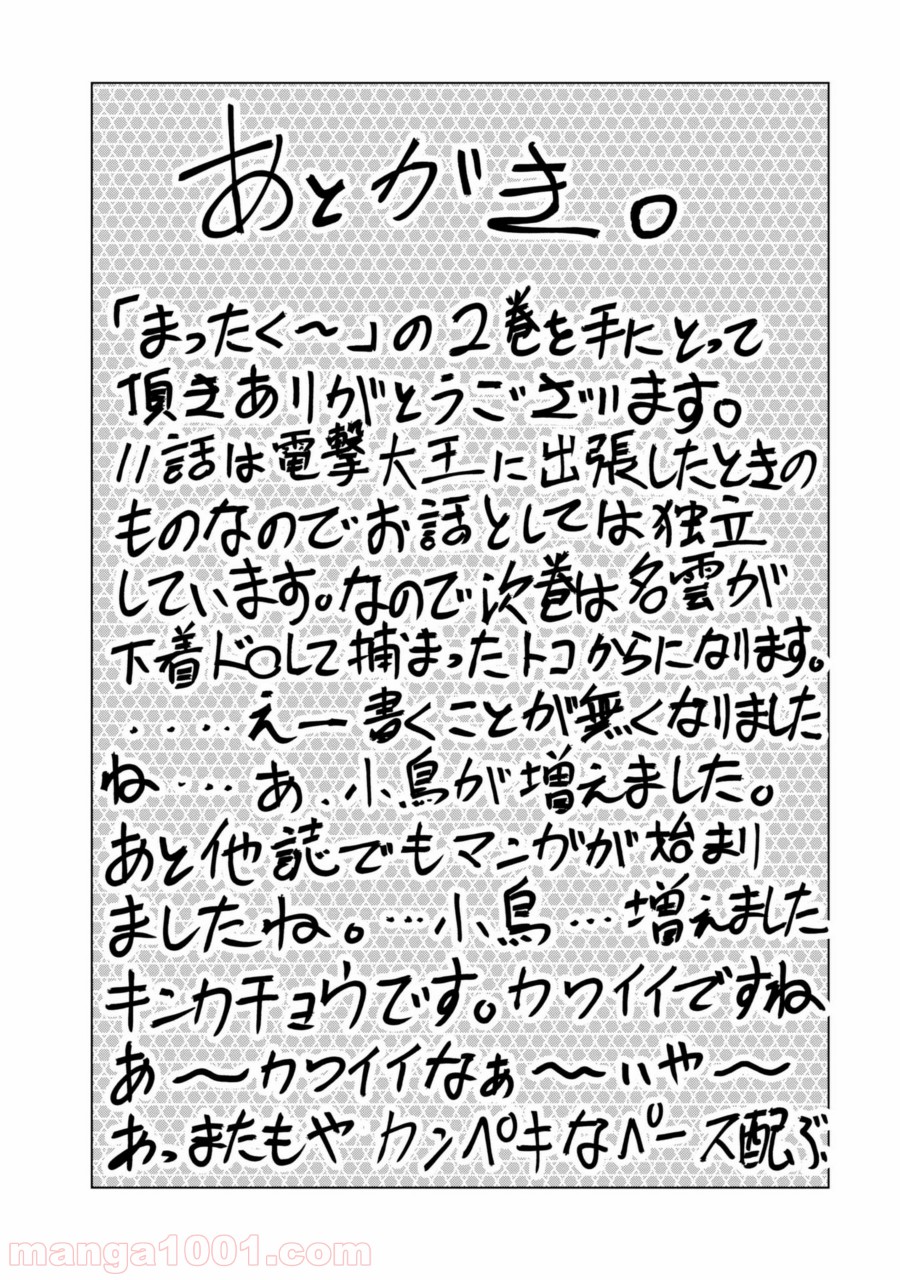 あとがき。
「まったく～」の2巻を手にとって
頂きありがとうございます。
11話は電撃大王に出張したときの
ものなのでお話としては独立
しています。なので次巻は名雲が
下着ド○して捕まったトコからになります。
・・・・・えー書くことが無くなりました
ね・・・・あ、小鳥が増えました。
あと他誌でもマンガが始まり
ましたね。…小鳥…増えました
キンカチョウです。カワイイですね
あ～カワイイなぁ～いや～
あっまたもやカンペキなペース配ぶ
manga1001.com